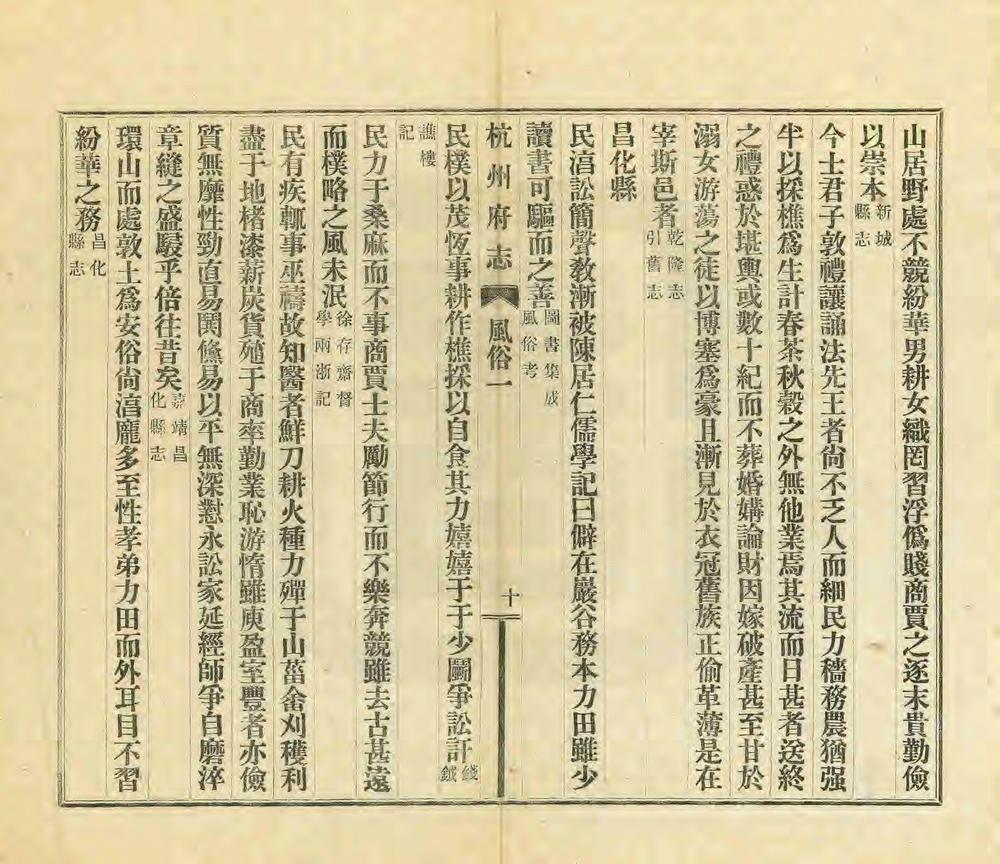 山居野處不競紛華男耕女織罔習浮僞賤商賈之逐末貴勤儉
以崇本新城縣志
今士君子敦禮讓誦法先王者尙不乏人而細民力穡務農猶强
半以採樵爲生計春茶秋穀之外無他業焉其流而日甚者送終
之禮惑於堪輿或數十紀而不葬婚媾論財因嫁破產甚至甘於
溺女游蕩之徒以博塞爲豪且漸見於衣冠舊族正偷革薄是在
宰斯邑者乾隆志引舊志
昌化縣
民湻訟簡聲敎漸被陳居仁儒學記曰僻在巖谷務本力田雖少
讀書可驅而之善圖書集成風俗考
杭州府志 風俗一 十
民樸以茂恆事耕作樵採以自食其力嬉嬉于于少鬭爭訟訐錢鉞
譙樓記
民力于桑麻而不事商賈士夫勵節行而不樂奔競雖去古甚遠
而樸略之風未泯徐存齋督學兩浙記
民有疾輒事巫禱故知醫者鮮刀耕火種力殫于山菑畬刈穫利
盡于地楮漆薪炭貨殖于商率勤業恥游惰雖庾盈室豐者亦儉
質無靡性勁直易鬨儵易以平無深懟永訟家延經師爭自磨淬
章縫之盛駸乎倍往昔矣嘉靖昌化縣志
環山而處敦土爲安俗尙湻龐多至性孝弟力田而外耳目不習
紛華之務昌化縣志